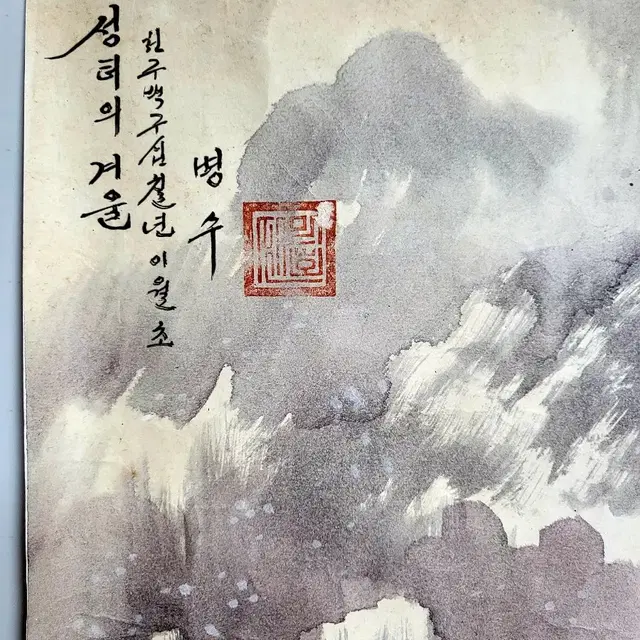 성터의 겨울
천구백구십칠년 이월 초
병수